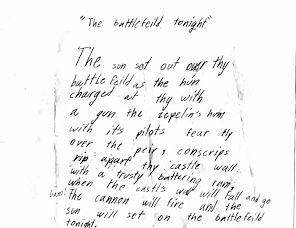 "The battlefeild, tonight."
The sun set out over thy
battlefeild as the hun
charged at thy with
a gun the zepelin's hum
with it's pilots fear ty
over the peirs conscrips
rip apart thy castle wall
with a trusty battering ram,
when the castl's wall will fall and go
bam. The cannon will fire and the
sun will set on the battlefeild
tonight.